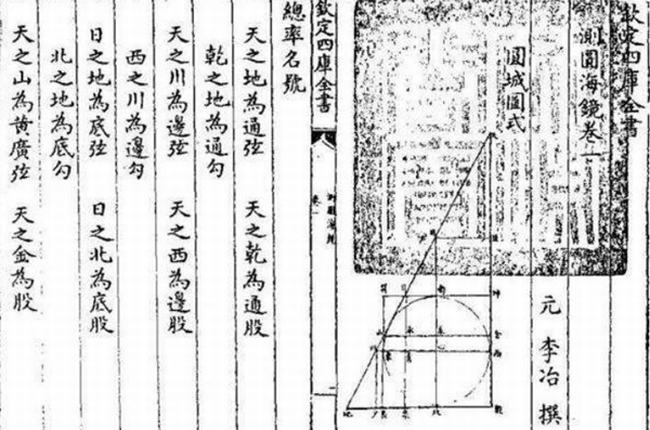 欽定四庫全書
測圓海鏡卷一
元 李冶 撰
圓城圖式
欽定四庫全書
總率名號
天之地為通弦 天之乾為通股
乾之地為通勾
天之川為邊弦 天之西為邊股
西之川為邊勾
日之地為底弦 日之北為底股
北之地為底勾
天之山為黃廣弦 天之金為股